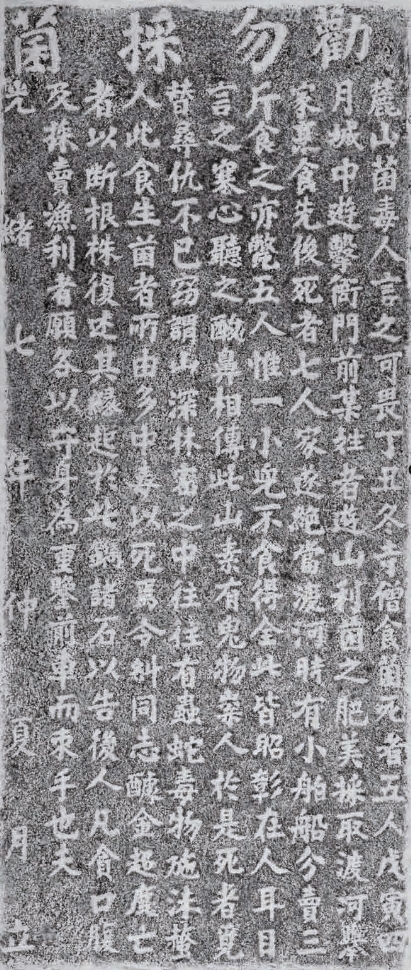 勸勿採菌
麓山菌毒人言之可畏丁丑冬寺僧食菌死者五人戊寅四
月城中遊擊衙門前某姓者遊山利菌之肥美採取渡河擧
家烹食先後死者七人家遂絶當渡河時有小舶船分賣三
斤食之亦斃五人惟一小兒不食得全此皆昭彰在人耳目
言之寒心聽之酸鼻相傳此山素有鬼物祟人於是死者覓
替尋仇不已竊謂山深林密之中往往有蟲蛇毒物
人此食生菌者所由多中毒以死焉今糾同志醵金起鹿亡
者以断根株復述其緣起於此鐫諸石以告後人凡貪口腹
及採賣漁利者願各以守身為重鑒前車而束手也夫
光緒七年仲夏月立